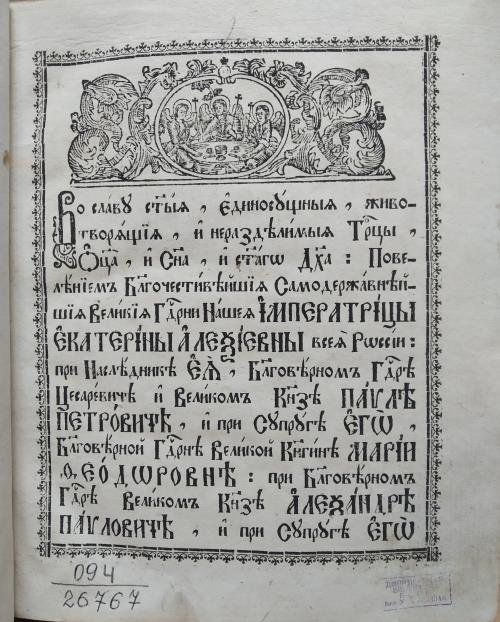 Во славу ст҃ыѧ, є҆диносꙋщныѧ, живо-
творѧщїѧ, и҆ нераздѣлимыѧ Трⷪ҇цы,
Ѻ҆ц҃а, и҆ Сн҃а, и҆ ст҃агѡ Дх҃а: Пове-
лѣнїемъ Бл҃гочестивѣйшїѧ Самодержавнѣй-
шїѧ Великїѧ Гдⷭ҇рни Нашеѧ І҆МПЕРАТРИЦЫ
Є҆КАТЕРИНЫ А҆ЛЕѮІЕВНЫ всеѧ Рѡссіи:
при Наслѣдникѣ Є҆Ѧ҆̀, Бл҃говѣрномъ Гдⷭ҇рѣ
Цесаревичѣ и҆ Великомъ Кнⷤ҇зѣ ПАѴЛѢ
ПЕТРОВИЧѢ, и҆ при Сꙋпрꙋгѣ Є҆ГѠ̀,
Бл҃говѣрной Гдⷭ҇рнѣ Великой Кнⷤ҇гинѣ МАРІИ
Ѳ҆ЕОДѠРОВНѢ: при Бл҃говѣрномъ
Гдⷭ҇рѣ Великомъ Кнⷤ҇зѣ А҆ЛЕѮАНДРѢ
ПАѴЛОВИЧѢ, и҆ при Сꙋпрꙋгѣ Є҆ГѠ̀
094
26767